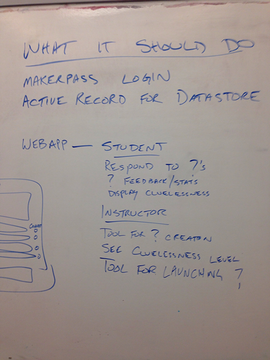 WHAT IT SHOULD DO
MAKERPASS LOGIN
ACTIVE RECORD FOR DATASTORE
WEBAPP — STUDENT
RESPOND TO ?'S
? FEEDBACK/STATS
DISPLAY CLUELESSNESS
INSTRUCTOR
TOOL FOR ? CREATION
SEE CLUELESSNESS LEVEL
TOOL FOR LAUNCHING ?